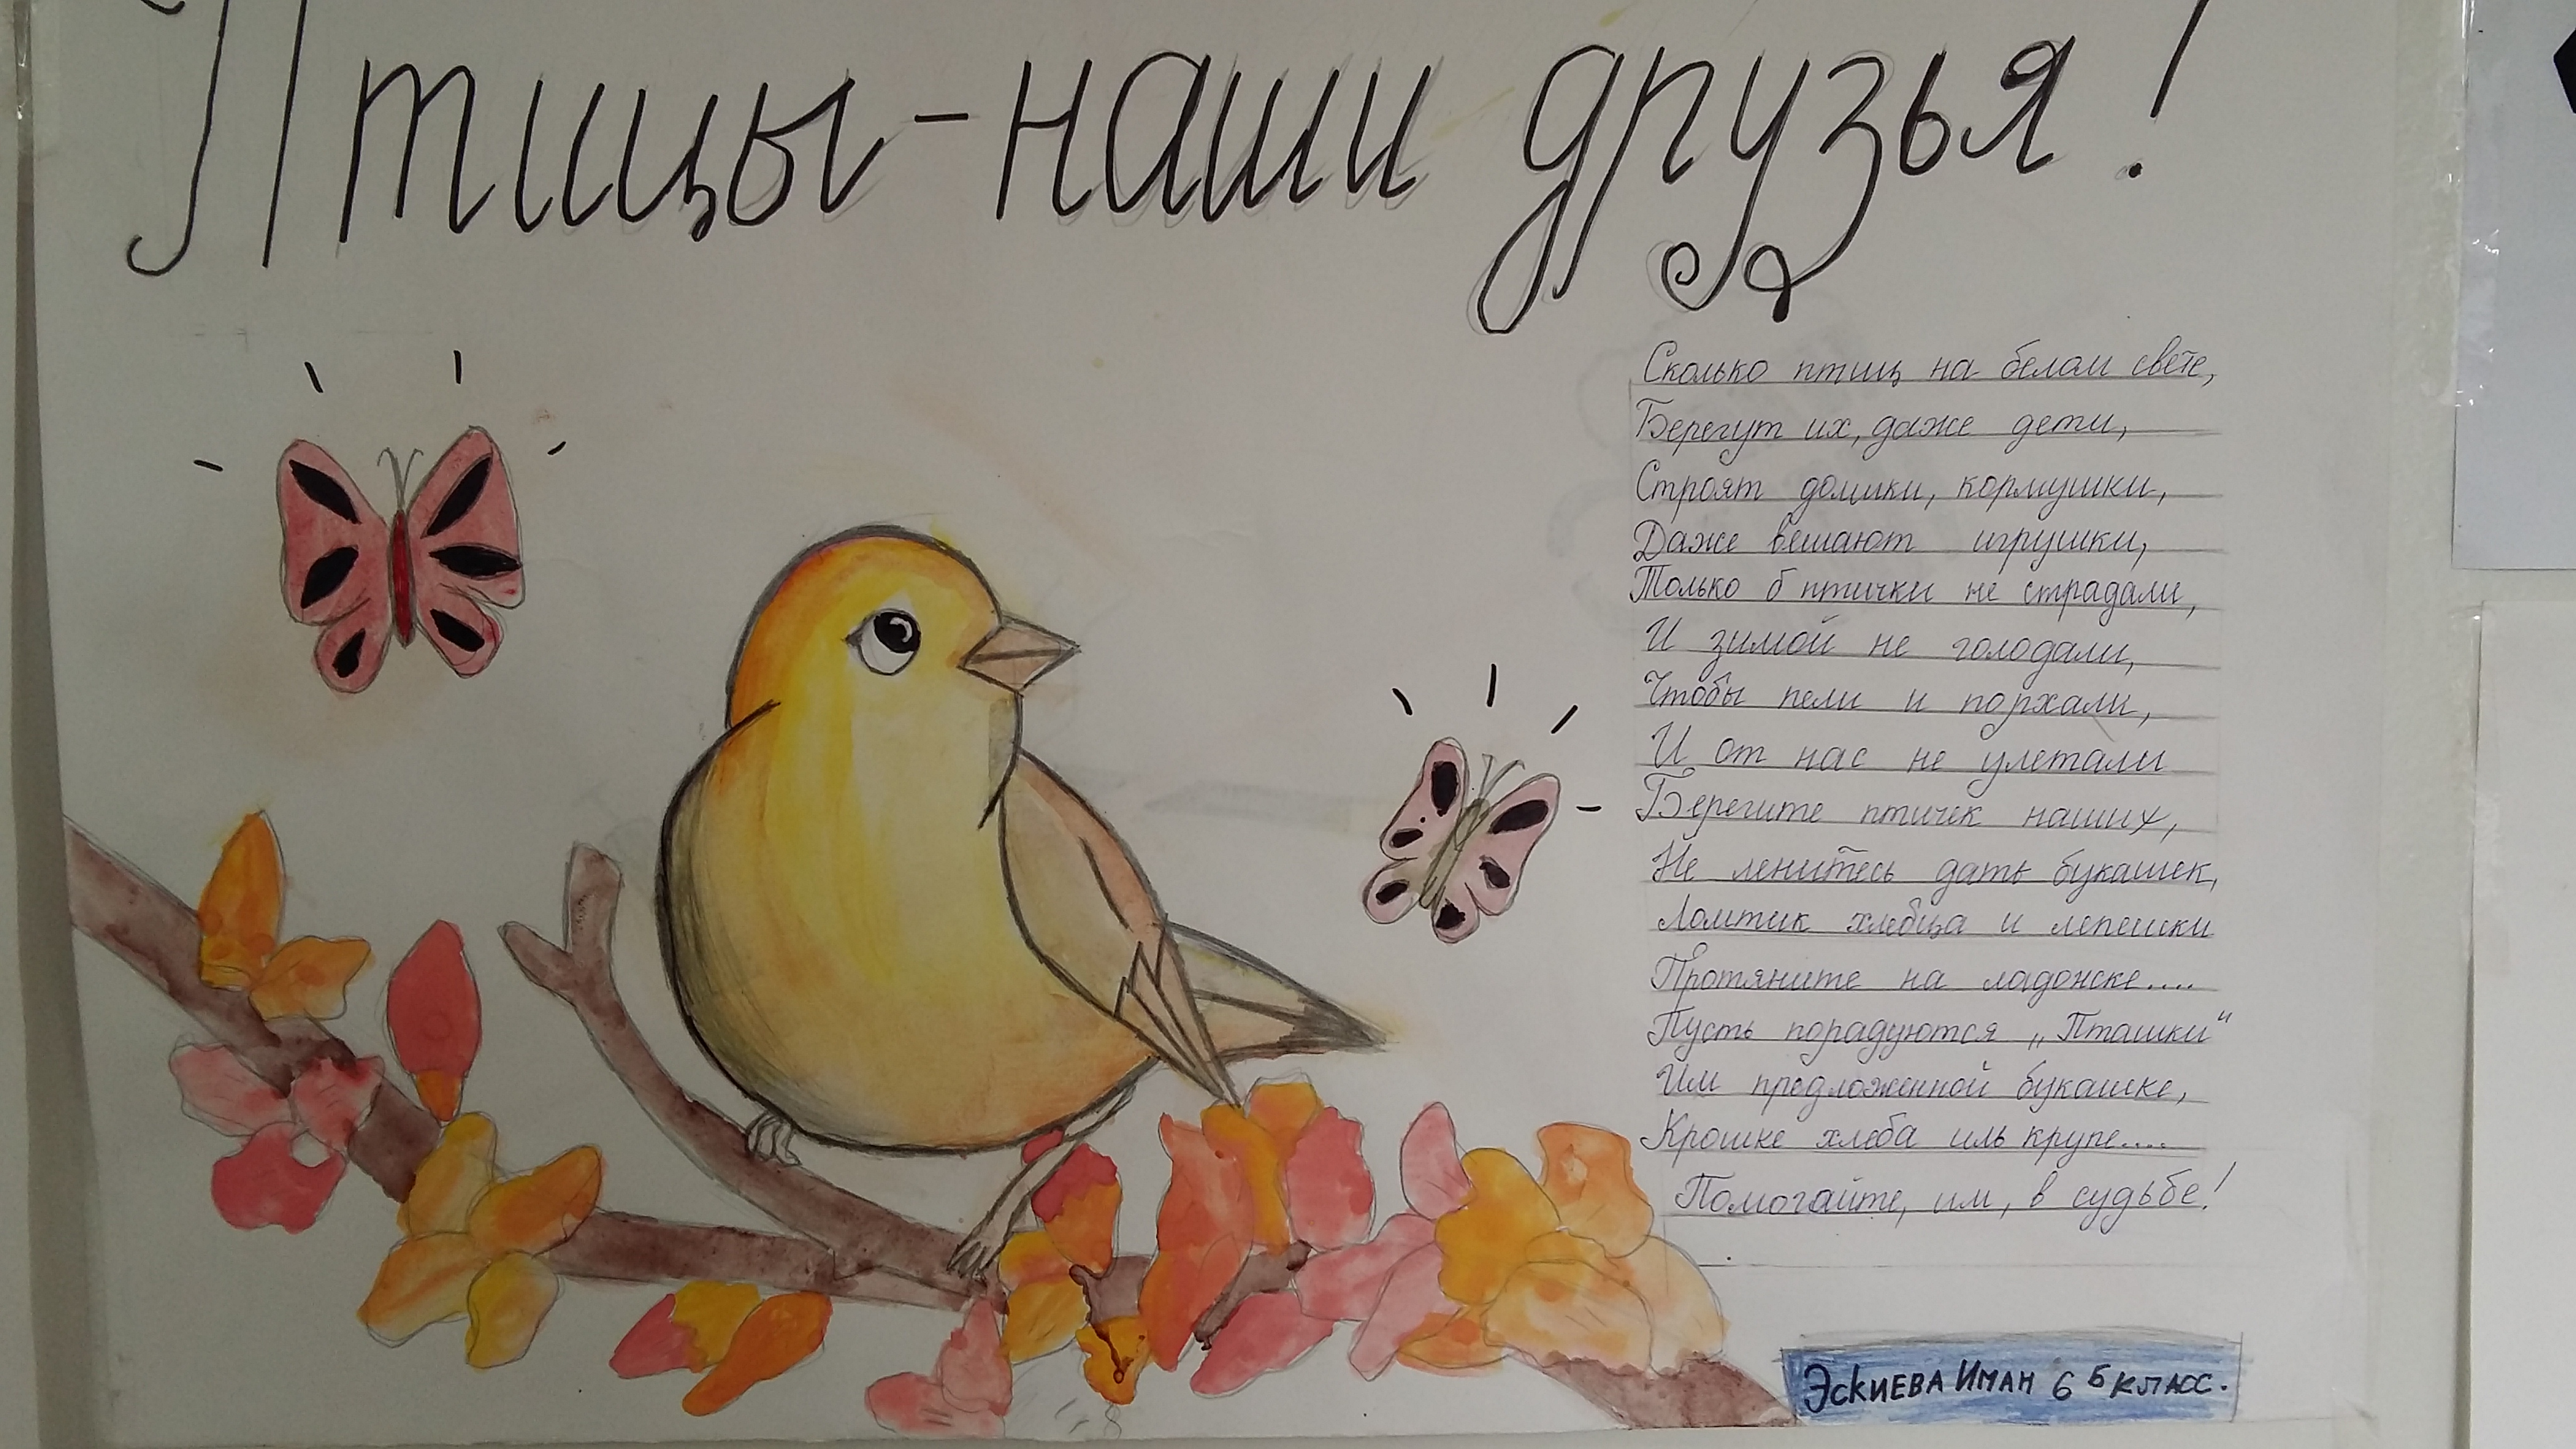 Птицы-наши друзья!
Сколько птиц на белом свете,
Берегут их, даже дети,
Строят домики, кормушки,
Даже вешают игрушки,
Только б птички не страдали,
И зимой не голодали,
Чтобы пели и порхали,
И от нас не улетали
Берегите птичек наших,
Не ленитесь дать букашек,
Ломтик хлебца и лепешки
Протяните на ладошке....
Пусть порадуются „Пташки“
Им предложенной букашке,
Крошке хлеба иль крупе....
Помогайте, им, в судьбе!
Эскиева Иман 6 Б класс.